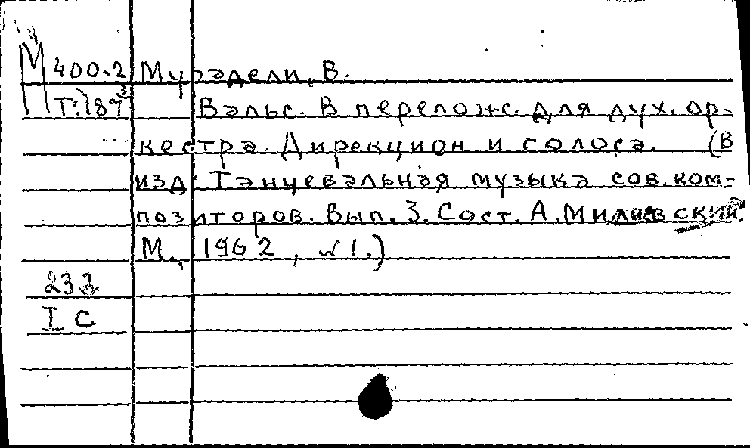 М 400.2 Мурадели, В.
Т:187³ Вальс. В перелож. для дух. ор-
кестра. Дирекцион и голоса. (В
изд: Танцевальная музыка сов. ком-
позиторов. Вып. 3. Сост. А. Милевский.
М., 1962, №1.)
233
I С